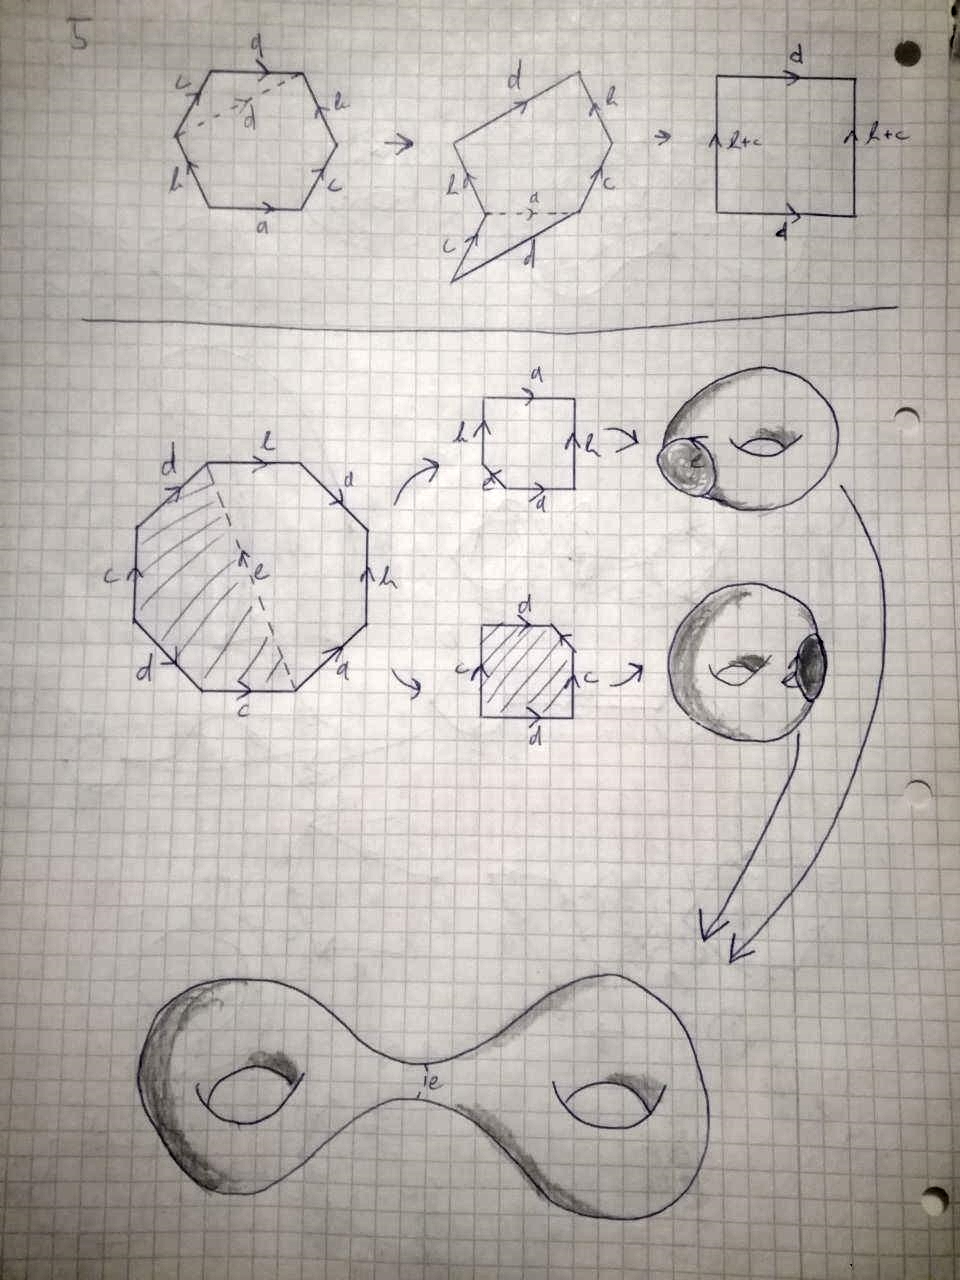 5
a
c
d
b
b
c
a
d
b
b
a
c
c
d
d
b+c
b+c
d
d
b
a
c
e
b
d
a
c
a
b
b
a
d
c
c
d
e